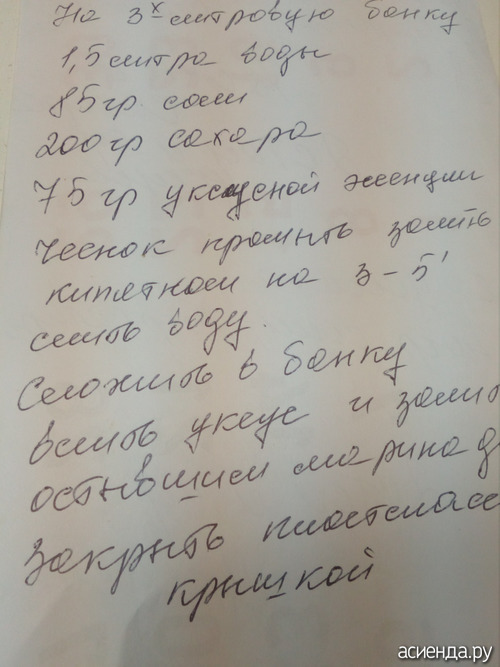 На 3х литровую банку
1,5 литра воды
85 гр. соли
200 гр сахара
75 гр уксусной эсенции
чеснок промыть залить
кипятком на 3-5'
слить воду.
Сложить в банку
влить уксус и залить
остывшим маринад
закрыть пластмасс
крышкой
асиенда.ру